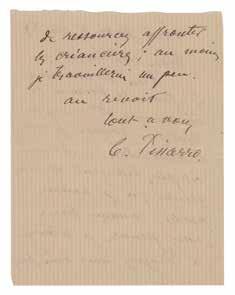 de ressources affronter
les créanciers ; au moins
je travaillerai un peu.
au revoir
tout à vous
C. Pissarro